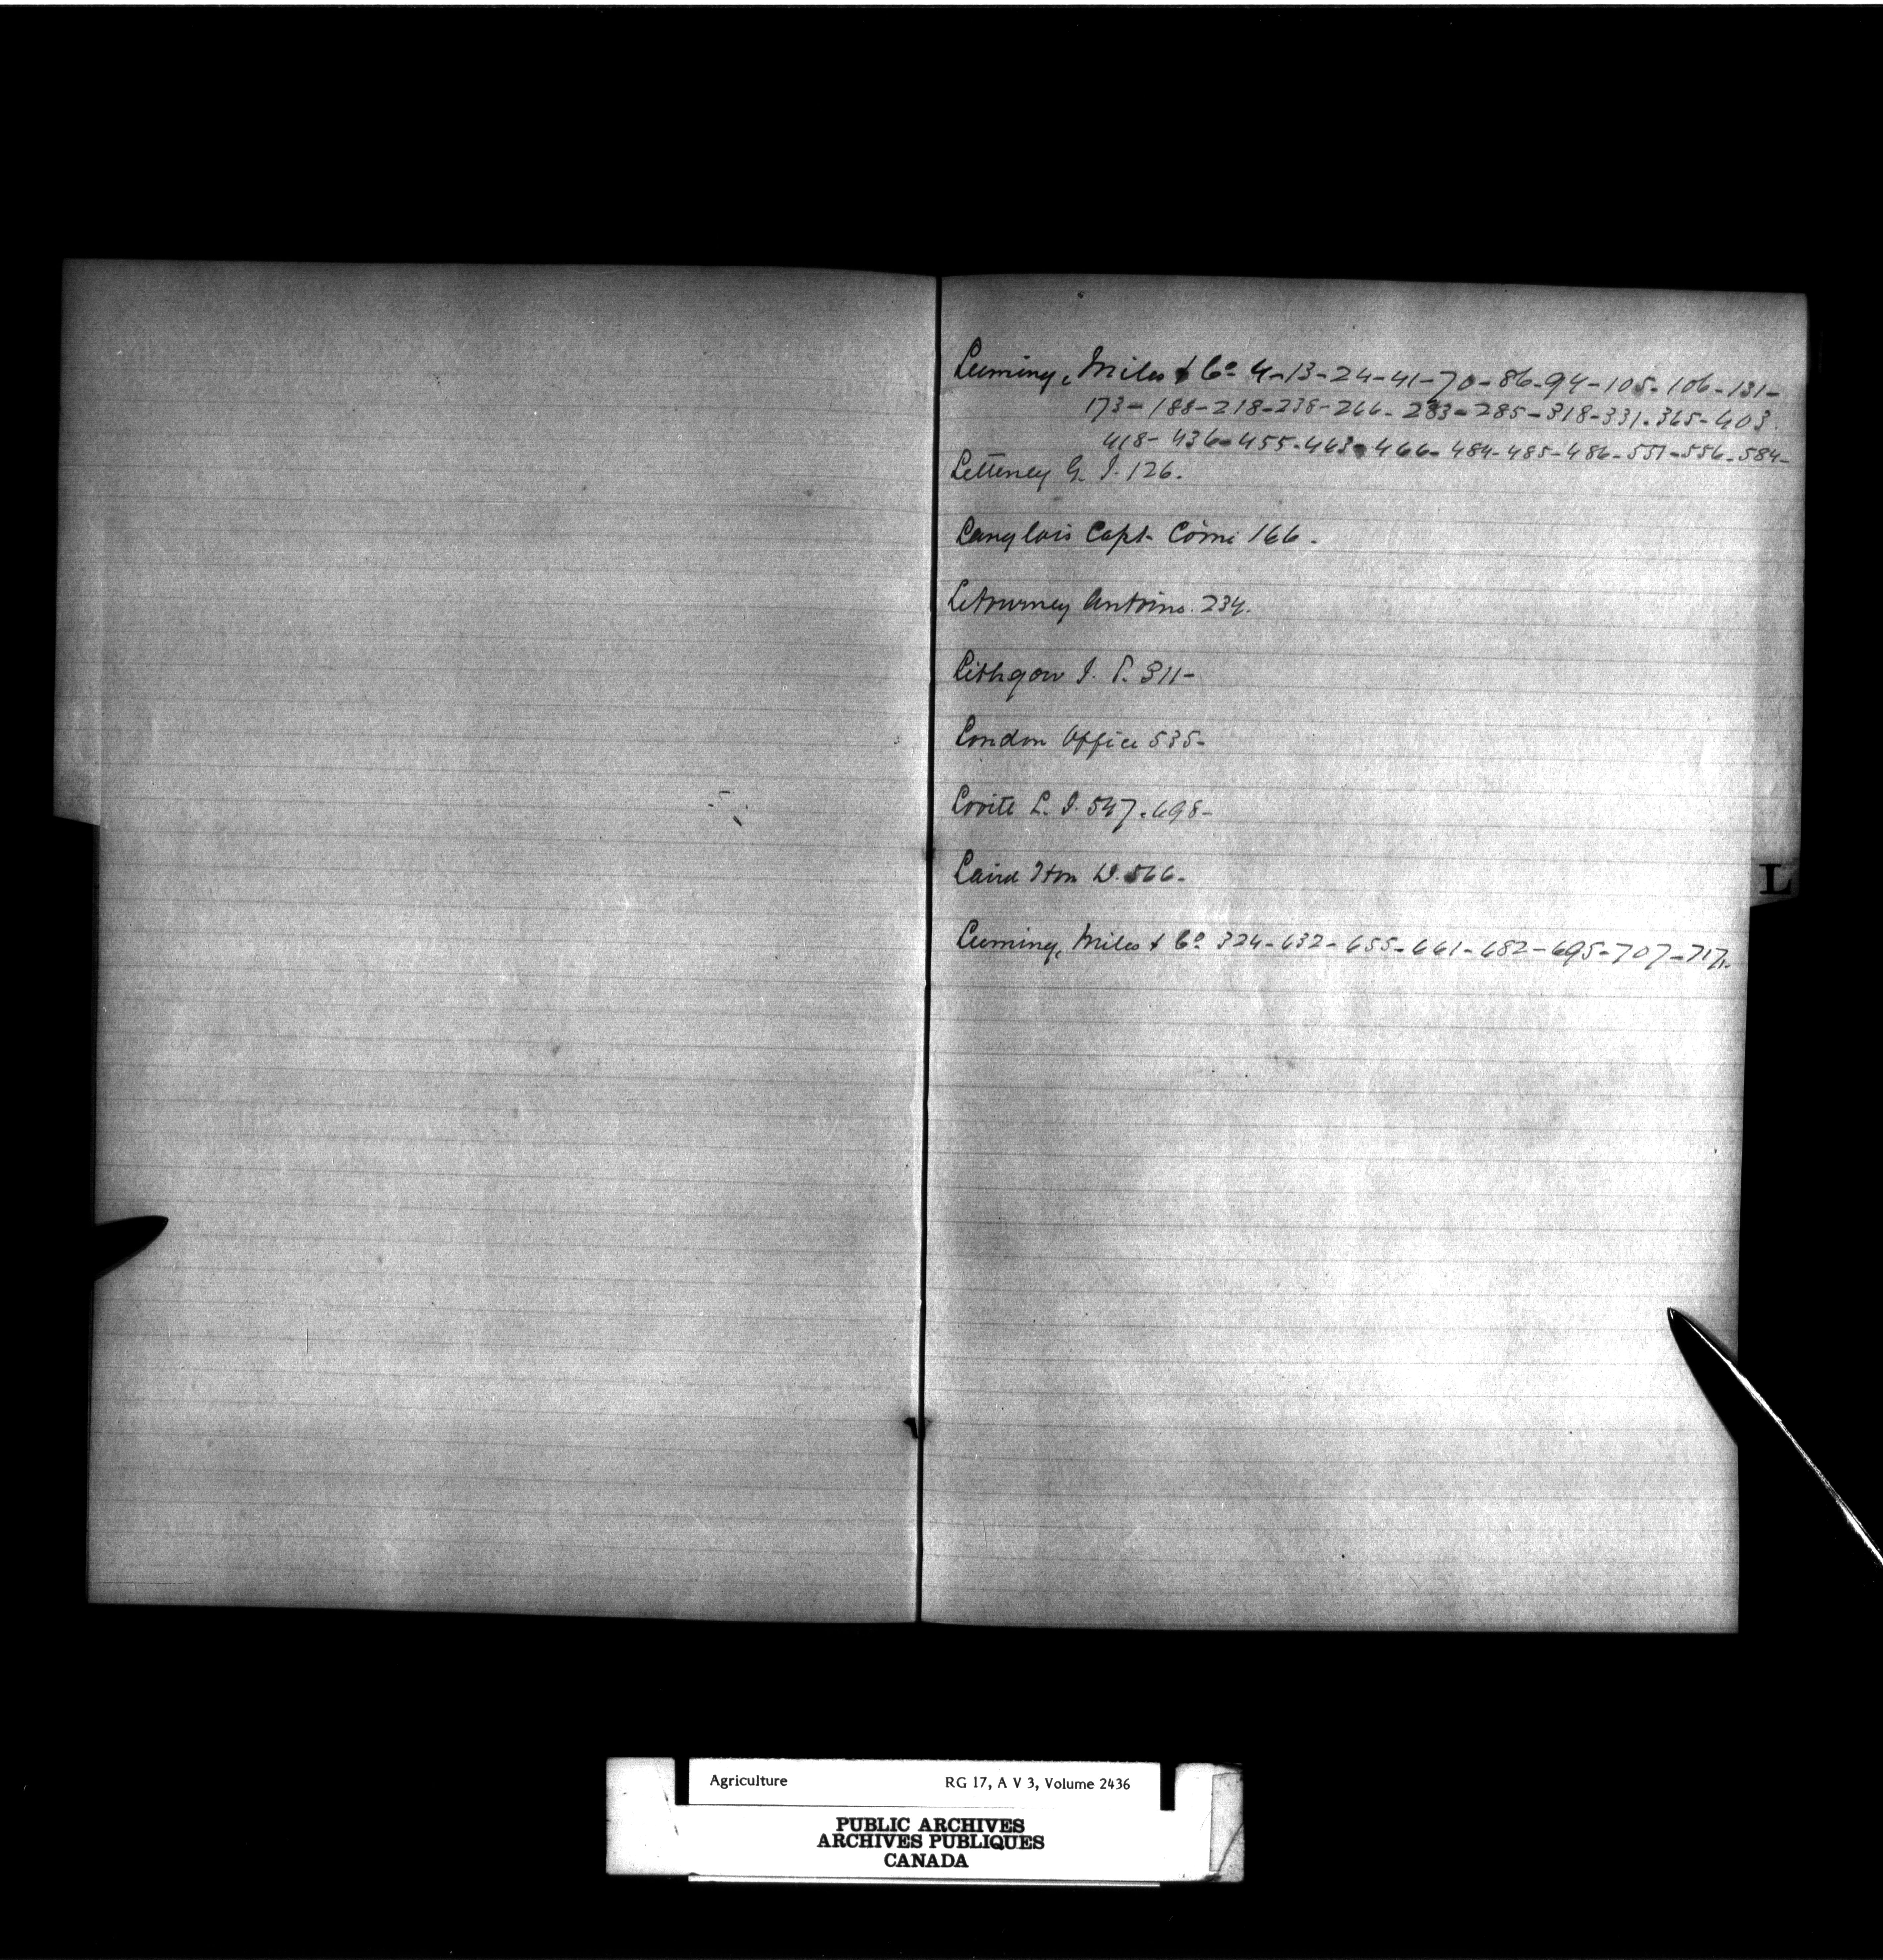 Leeming, Miles & Co 4-13-24-41-70-86-94-105-106-131-
173-188-218-238-266-283-285-318-331-365-403.
418-436-455-463-466-484-485-486-551-556-584-
Letteney G. I. 126.
Langlois Capt. Côme 166.
Letourney Antoine. 234.
Lithgow I. P. 311-
London Office 535-
Lovite L. I. 547-698-
L
Laird Hon D. 566-
Leeming, Miles & Co 324-632-655-661-682-695-707-717.
Agriculture RG 17, A V 3, Volume 2436
PUBLIC ARCHIVES
ARCHIVES PUBLIQUES
CANADA